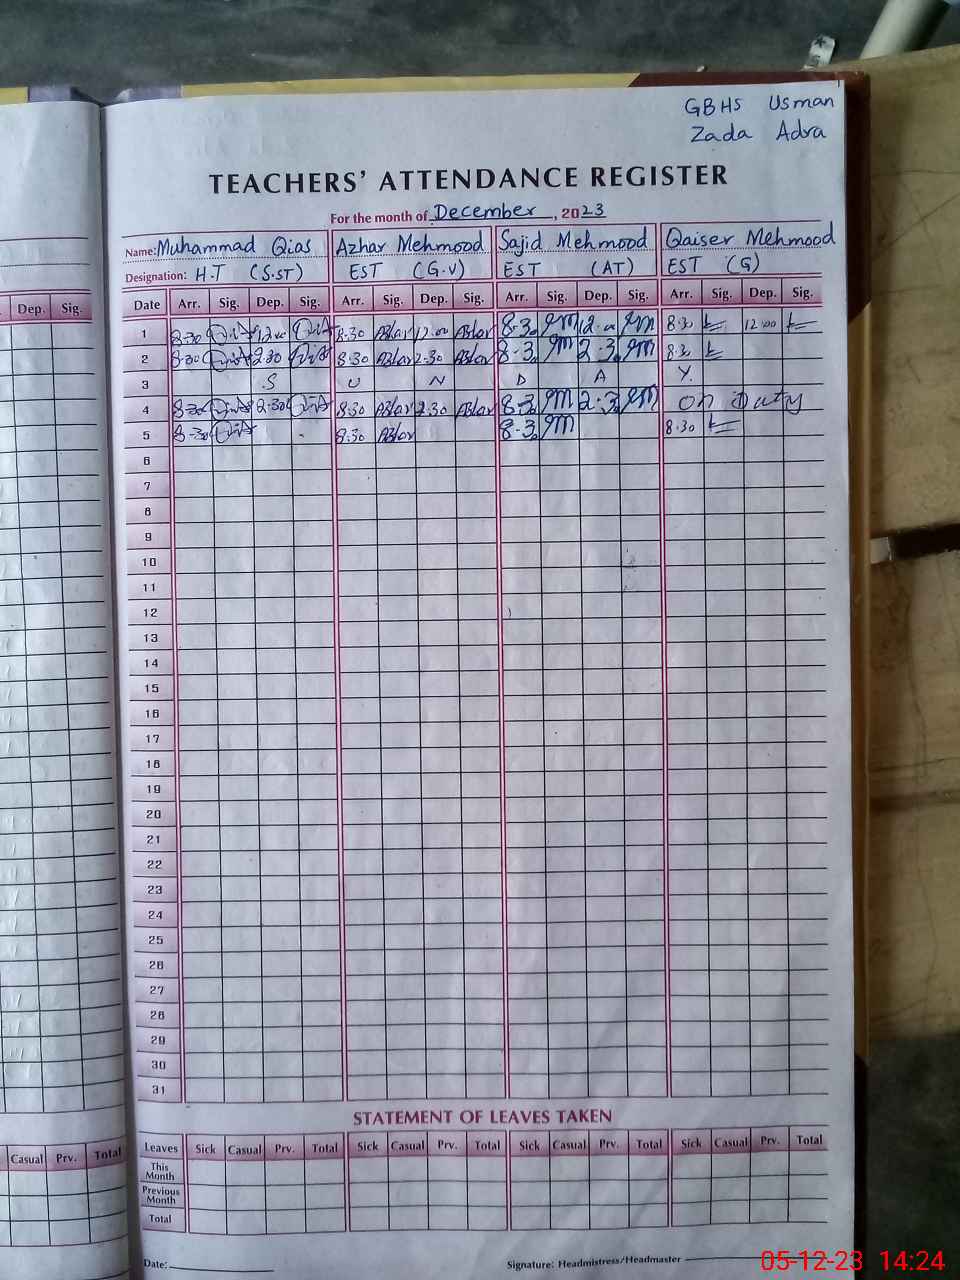 GBHS Usman
Zada Adra
TEACHERS' ATTENDANCE REGISTER
For the month of December, 2023
Name: Muhammad Qias Azhar Mehmood Sajid Mehmood Qaiser Mehmood
Designation: H.T (S.ST) EST (G.V) EST (AT) EST (G)
Dep. Sig. Date Arr. Sig. Dep. Sig. Arr. Sig. Dep. Sig. Arr. Sig. Dep. Sig. Arr. Sig. Dep. Sig.
1 8-30 12.00 8.30 12.00 8.30 12.00 8.30 12.00
2 8-30 2.30 8.30 2.30 8.30 2.30 8.30
3 S U N D A Y
4 8-30 2.30 8.30 2.30 8.30 2.30 On Duty
5 8-30 8.30 8.30 8.30
6
7
8
9
10
11
12
13
14
15
16
17
18
19
20
21
22
23
24
25
26
27
28
29
30
31
STATEMENT OF LEAVES TAKEN
Casual Prv. Total Leaves Sick Casual Prv. Total Sick Casual Prv. Total Sick Casual Prv. Total Sick Casual Prv. Total
This
Month
Previous
Month
Total
Date: Signature: Headmistress/Headmaster
05-12-23 14:24